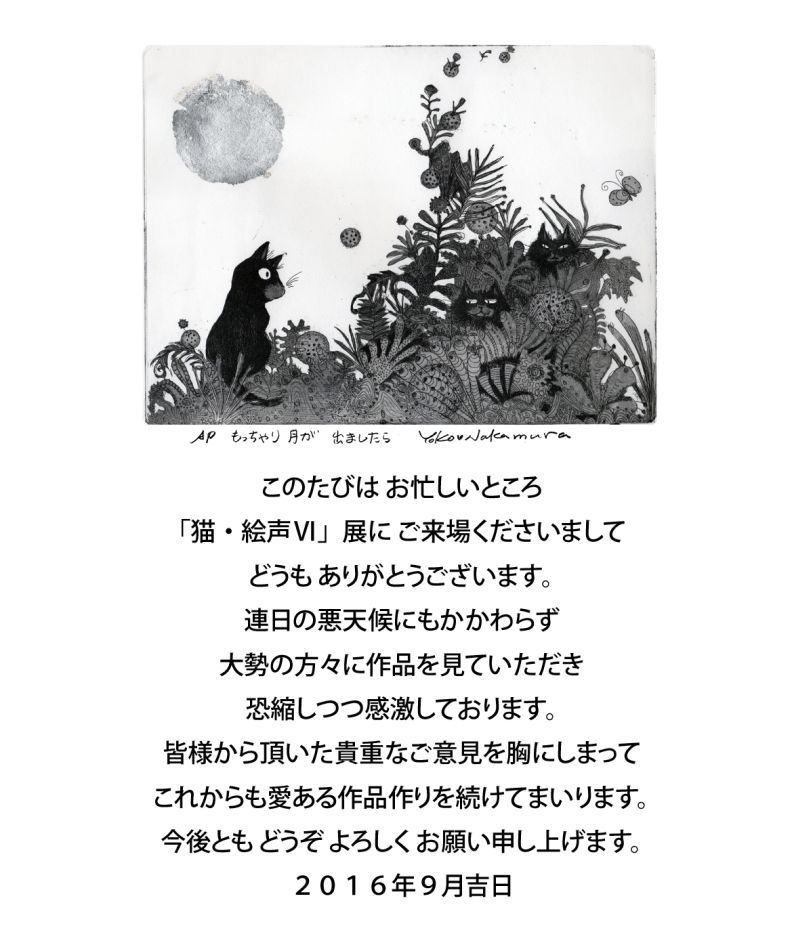 AP もっちゃり 月が 出ましたら Yoko Nakamura
このたびは お忙しいところ
「猫・絵声Ⅵ」展に ご来場くださいまして
どうも ありがとうございます。
連日の悪天候にもかかわらず
大勢の方々に作品を見ていただき
恐縮しつつ感激しております。
皆様から頂いた貴重なご意見を胸にしまって
これからも愛ある作品作りを続けてまいります。
今後とも どうぞ よろしく お願い申し上げます。
２０１６年９月吉日